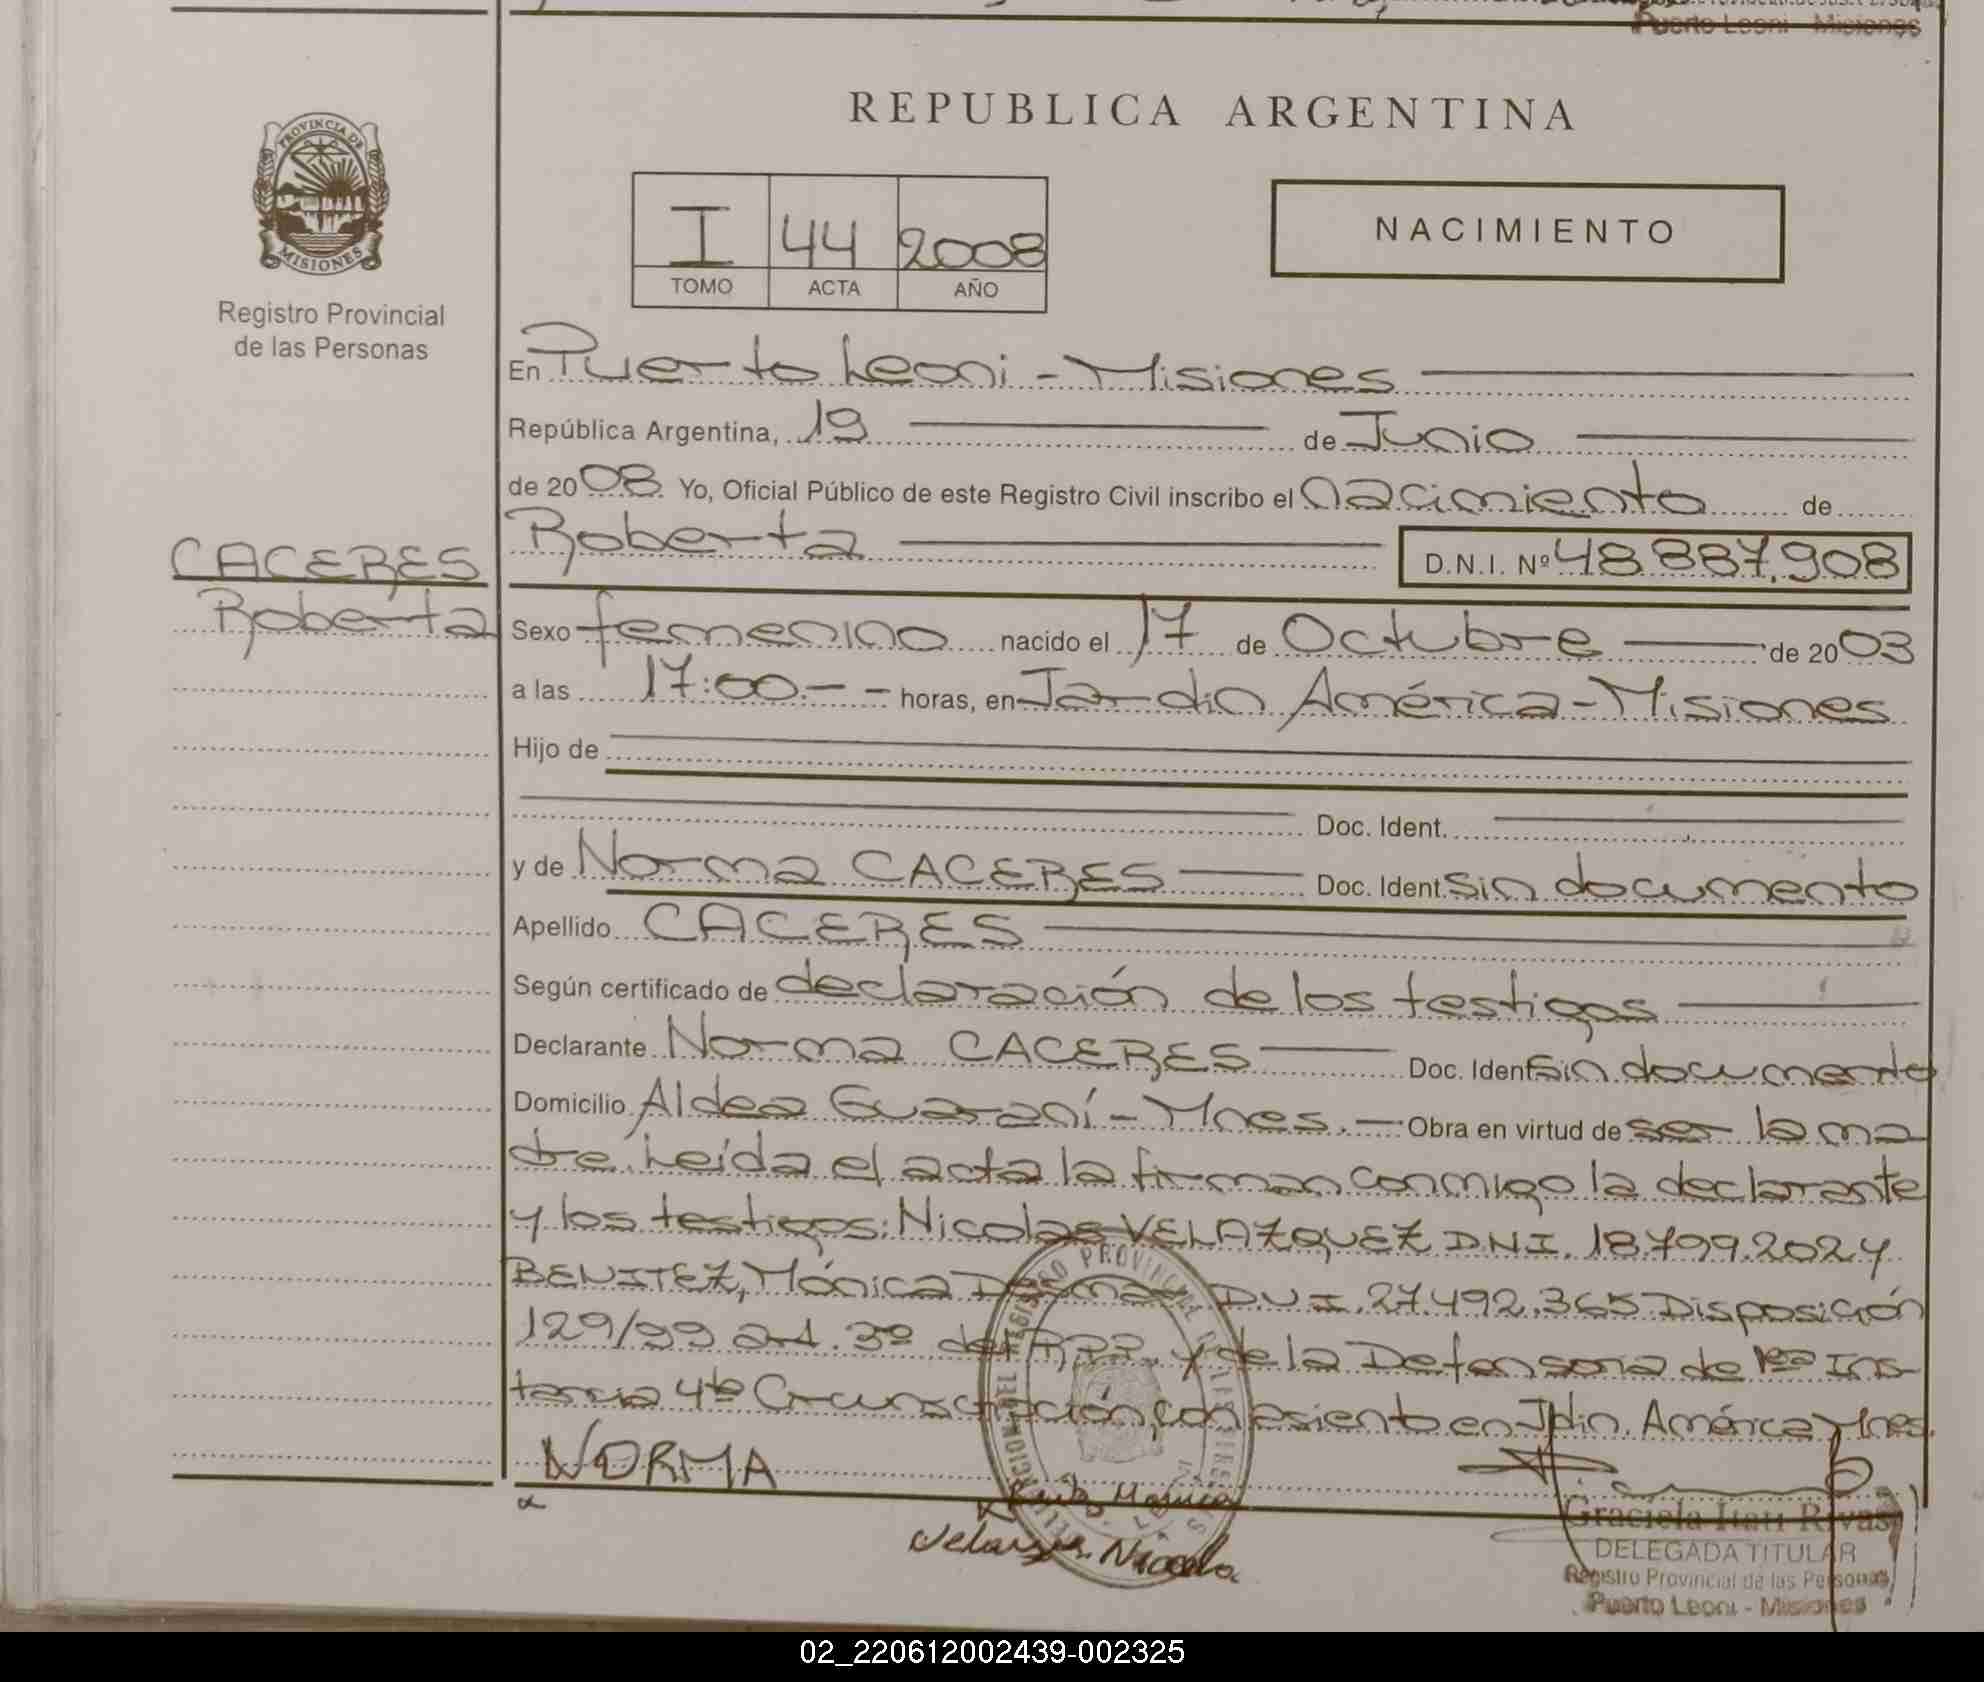 Puerto Leoni - Misiones
REPUBLICA ARGENTINA
PROVINCIA DE
MISIONES
Registro Provincial
de las Personas
I 44 2008
TOMO ACTA AÑO
NACIMIENTO
En Puerto Leoni - Misiones
República Argentina, 19 de Junio
de 2008. Yo, Oficial Público de este Registro Civil inscribo el nacimiento de
Roberta D.N.I. Nº 48.887.908
CACERES
Roberta
Sexo femenino nacido el 17 de Octubre de 2003
a las 17:00.- - horas, en Jardín América - Misiones
Hijo de
Doc. Ident.
y de Norma CACERES Doc. Ident. sin documento
Apellido CACERES
Según certificado de declaración de los testigos
Declarante Norma CACERES Doc. Ident. sin documento
Domicilio Aldea Guaraní - Mnes. - Obra en virtud de ser la ma
dre. Leída el acta la firman conmigo la declarante
y los testigos: Nicolas VELAZQUEZ D.N.I. 18.799.202 y
BENITEZ, Mónica D.N.I. 27.492.365 Disposición
129/99 art. 3º del R.P.P. y de la Defensoria de 1ra Ins-
tancia 4ta Circunscripción, con asiento en Jdin. América Mnes.
NORMA
Graciela Itatí Rivas
DELEGADA TITULAR
Registro Provincial de las Personas
Puerto Leoni - Misiones
02_220612002439-002325